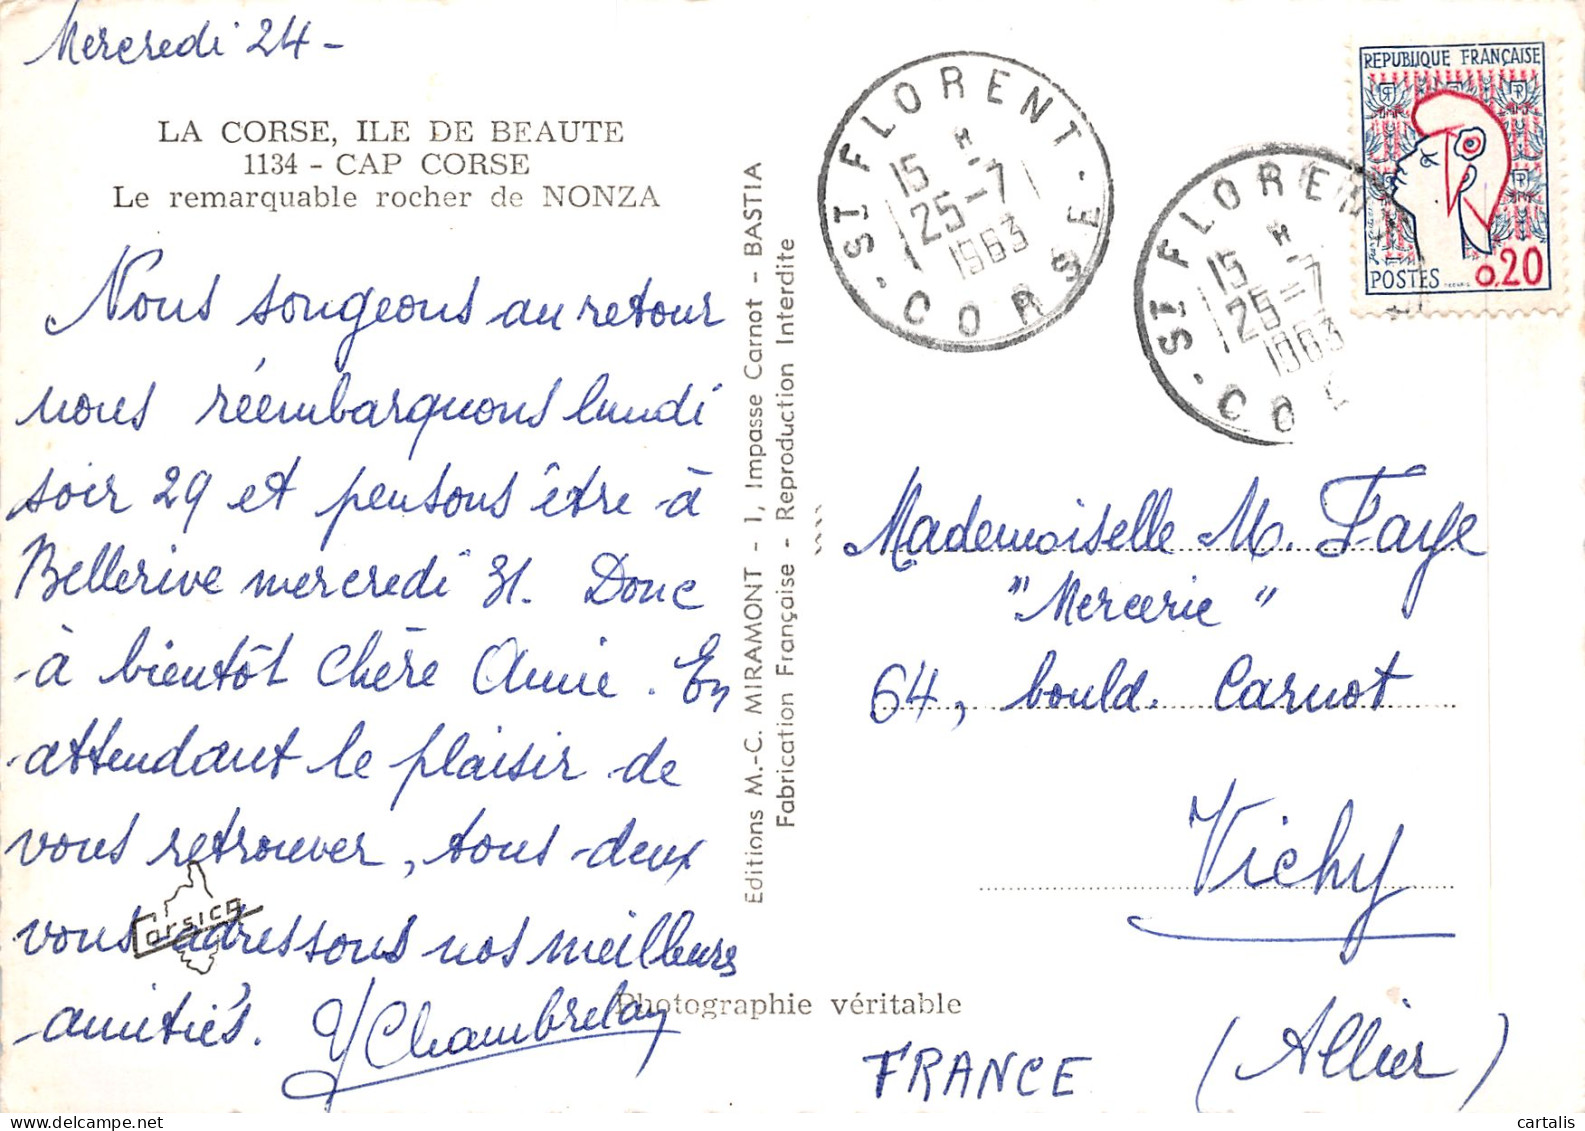 Mercredi 24 -
LA CORSE, ILE DE BEAUTE
1134 - CAP CORSE
Le remarquable rocher de NONZA
Nous songeons au retour
nous réembarquons lundi
soir 29 et pensons être à
Bellerive mercredi 31. Donc
à bientôt chère Amie. En
attendant le plaisir de
vous retrouver, tous deux
vous adressons nos meilleures
amitiés. Y Chambrelay
Corsica
Editions M.-C. MIRAMONT - 1, Impasse Carnot - BASTIA
Fabrication Française - Reproduction Interdite
Photographie véritable
ST FLORENT
15 H
25-7
1963
CORSE
ST FLOREN
15 H
25-7
1963
CO
REPUBLIQUE FRANÇAISE
POSTES 0.20
Mademoiselle M. Faye
"Mercerie"
64, bould. Carnot
Vichy
(Allier)
FRANCE
© cartalis
www.delcampe.net